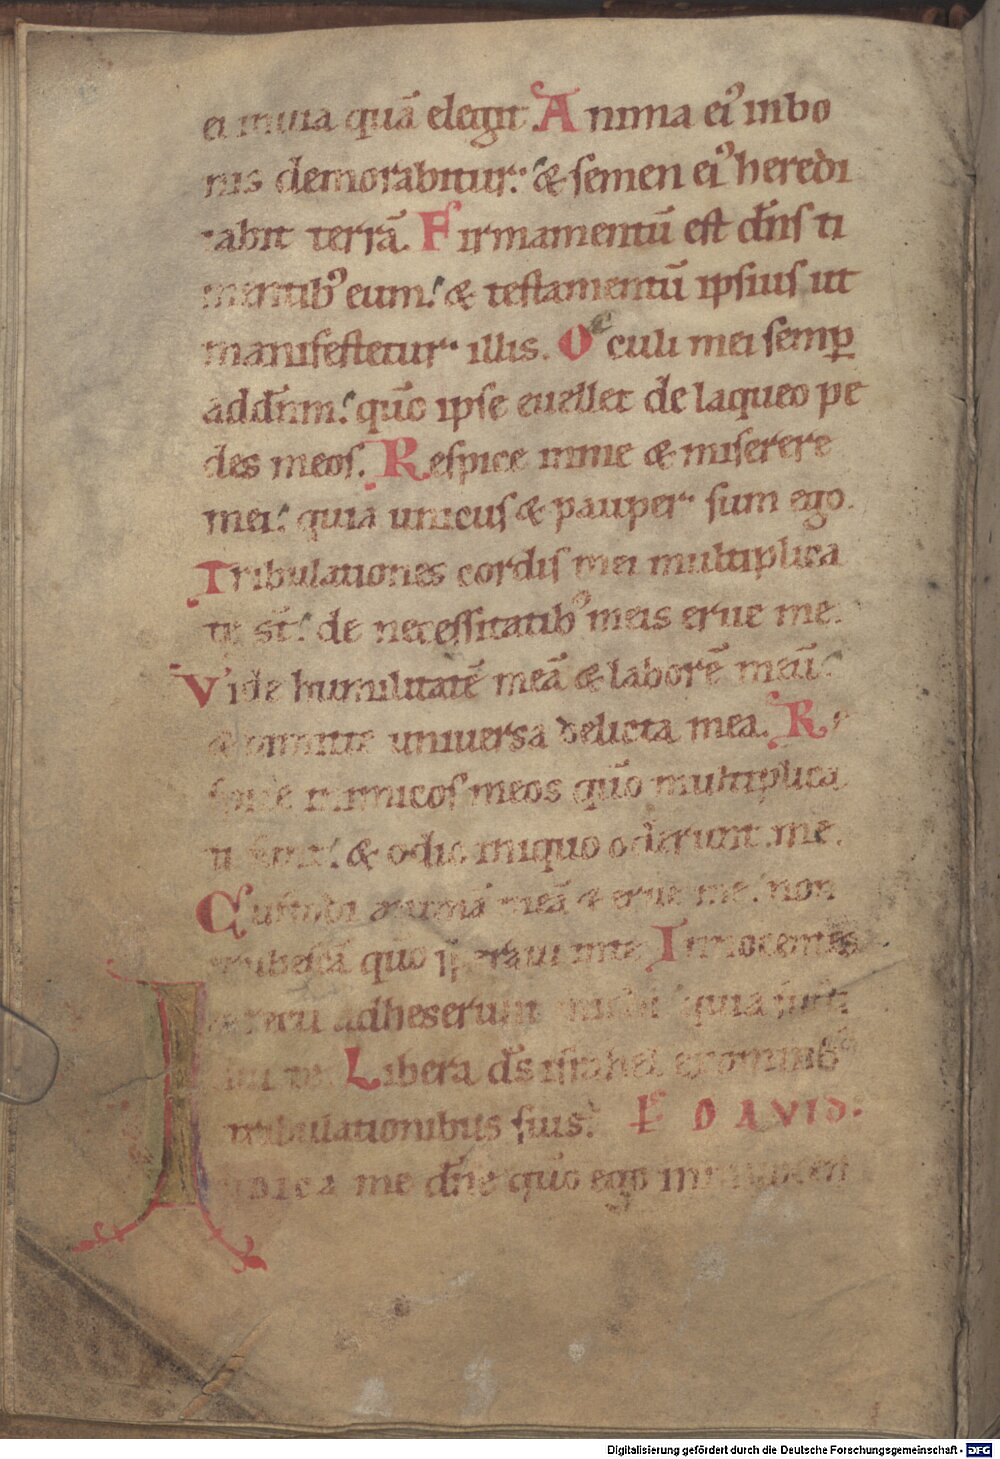 ei in uia quā elegit. Anima ei᾽ inbo
nis demorabitur: & semen ei᾽ heredi
tabit terrā. Firmamentū est dn̄s ti
mentib᾽ eum: & testamentū ipsius ut
manifestetur illis. Occuli mei semꝑ
addn̄m: qūo ipse euellet de laqueo pe
des meos. Respice inme & miserere
mei: quia unicus & pauper sum ego.
Tribulationes cordis mei multiplica
te st̄: de necessitatib᾽ meis erue me.
Vide humilitatē meā & laborē meū:
& omitte uniuersa delicta mea. Re
spice inimicos meos qūo multiplica
ti sunt: & odio iniquo oderunt me.
Custodi animā meā & erue me: non
erubescā qūo speraui inte. Innocentes
& recti adheserunt michi quia susti
nui te. Libera ds̄ israhel ex omnib᾽
tribulationibus suis. DAVID:
IVDICA me dn̄e qūo ego in innocen
Digitalisierung gefördert durch die Deutsche Forschungsgemeinschaft - DFG